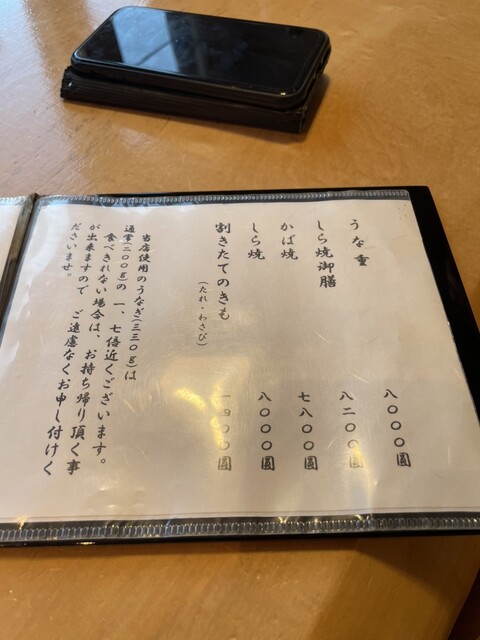 うな重 八〇〇〇圓
しら焼御膳 八二〇〇圓
かば焼 七八〇〇圓
しら焼 八〇〇〇圓
割きたてのきも 一四〇〇圓
(たれ・わさび)
当店使用のうなぎ(三三〇g)は
通常(二〇〇g)の一、七倍近くございます。
食べきれない場合は、お持ち帰り頂く事
が出来ますので ご遠慮なくお申し付けく
ださいませ。